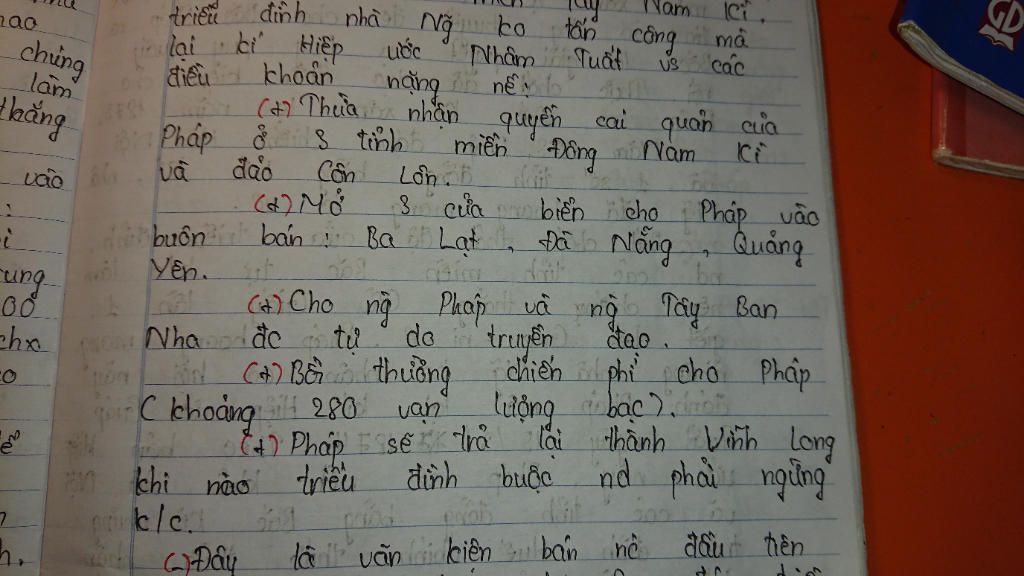 Nam Kì.
triều đình nhà Ng ko tấn công mà
lại kí Hiệp ước Nhâm Tuất vs các
điều khoản nặng nề:
(+) Thừa nhận quyền cai quản của
Pháp ở 3 tỉnh miền Đông Nam Kì
và đảo Côn Lôn.
(+) Mở 3 cửa biển cho Pháp vào
buôn bán: Ba Lạt, Đà Nẵng, Quảng
Yên.
(+) Cho ng Pháp và ng Tây Ban
Nha đc tự do truyền đạo.
(+) Bồi thường chiến phí cho Pháp
(khoảng 280 vạn lượng bạc).
(+) Pháp sẽ trả lại thành Vĩnh Long
khi nào triều đình buộc nd phải ngừng
k/c.
(-) Đây là văn kiện bán nc đầu tiên
chúng
làm
thắng
vào
GD